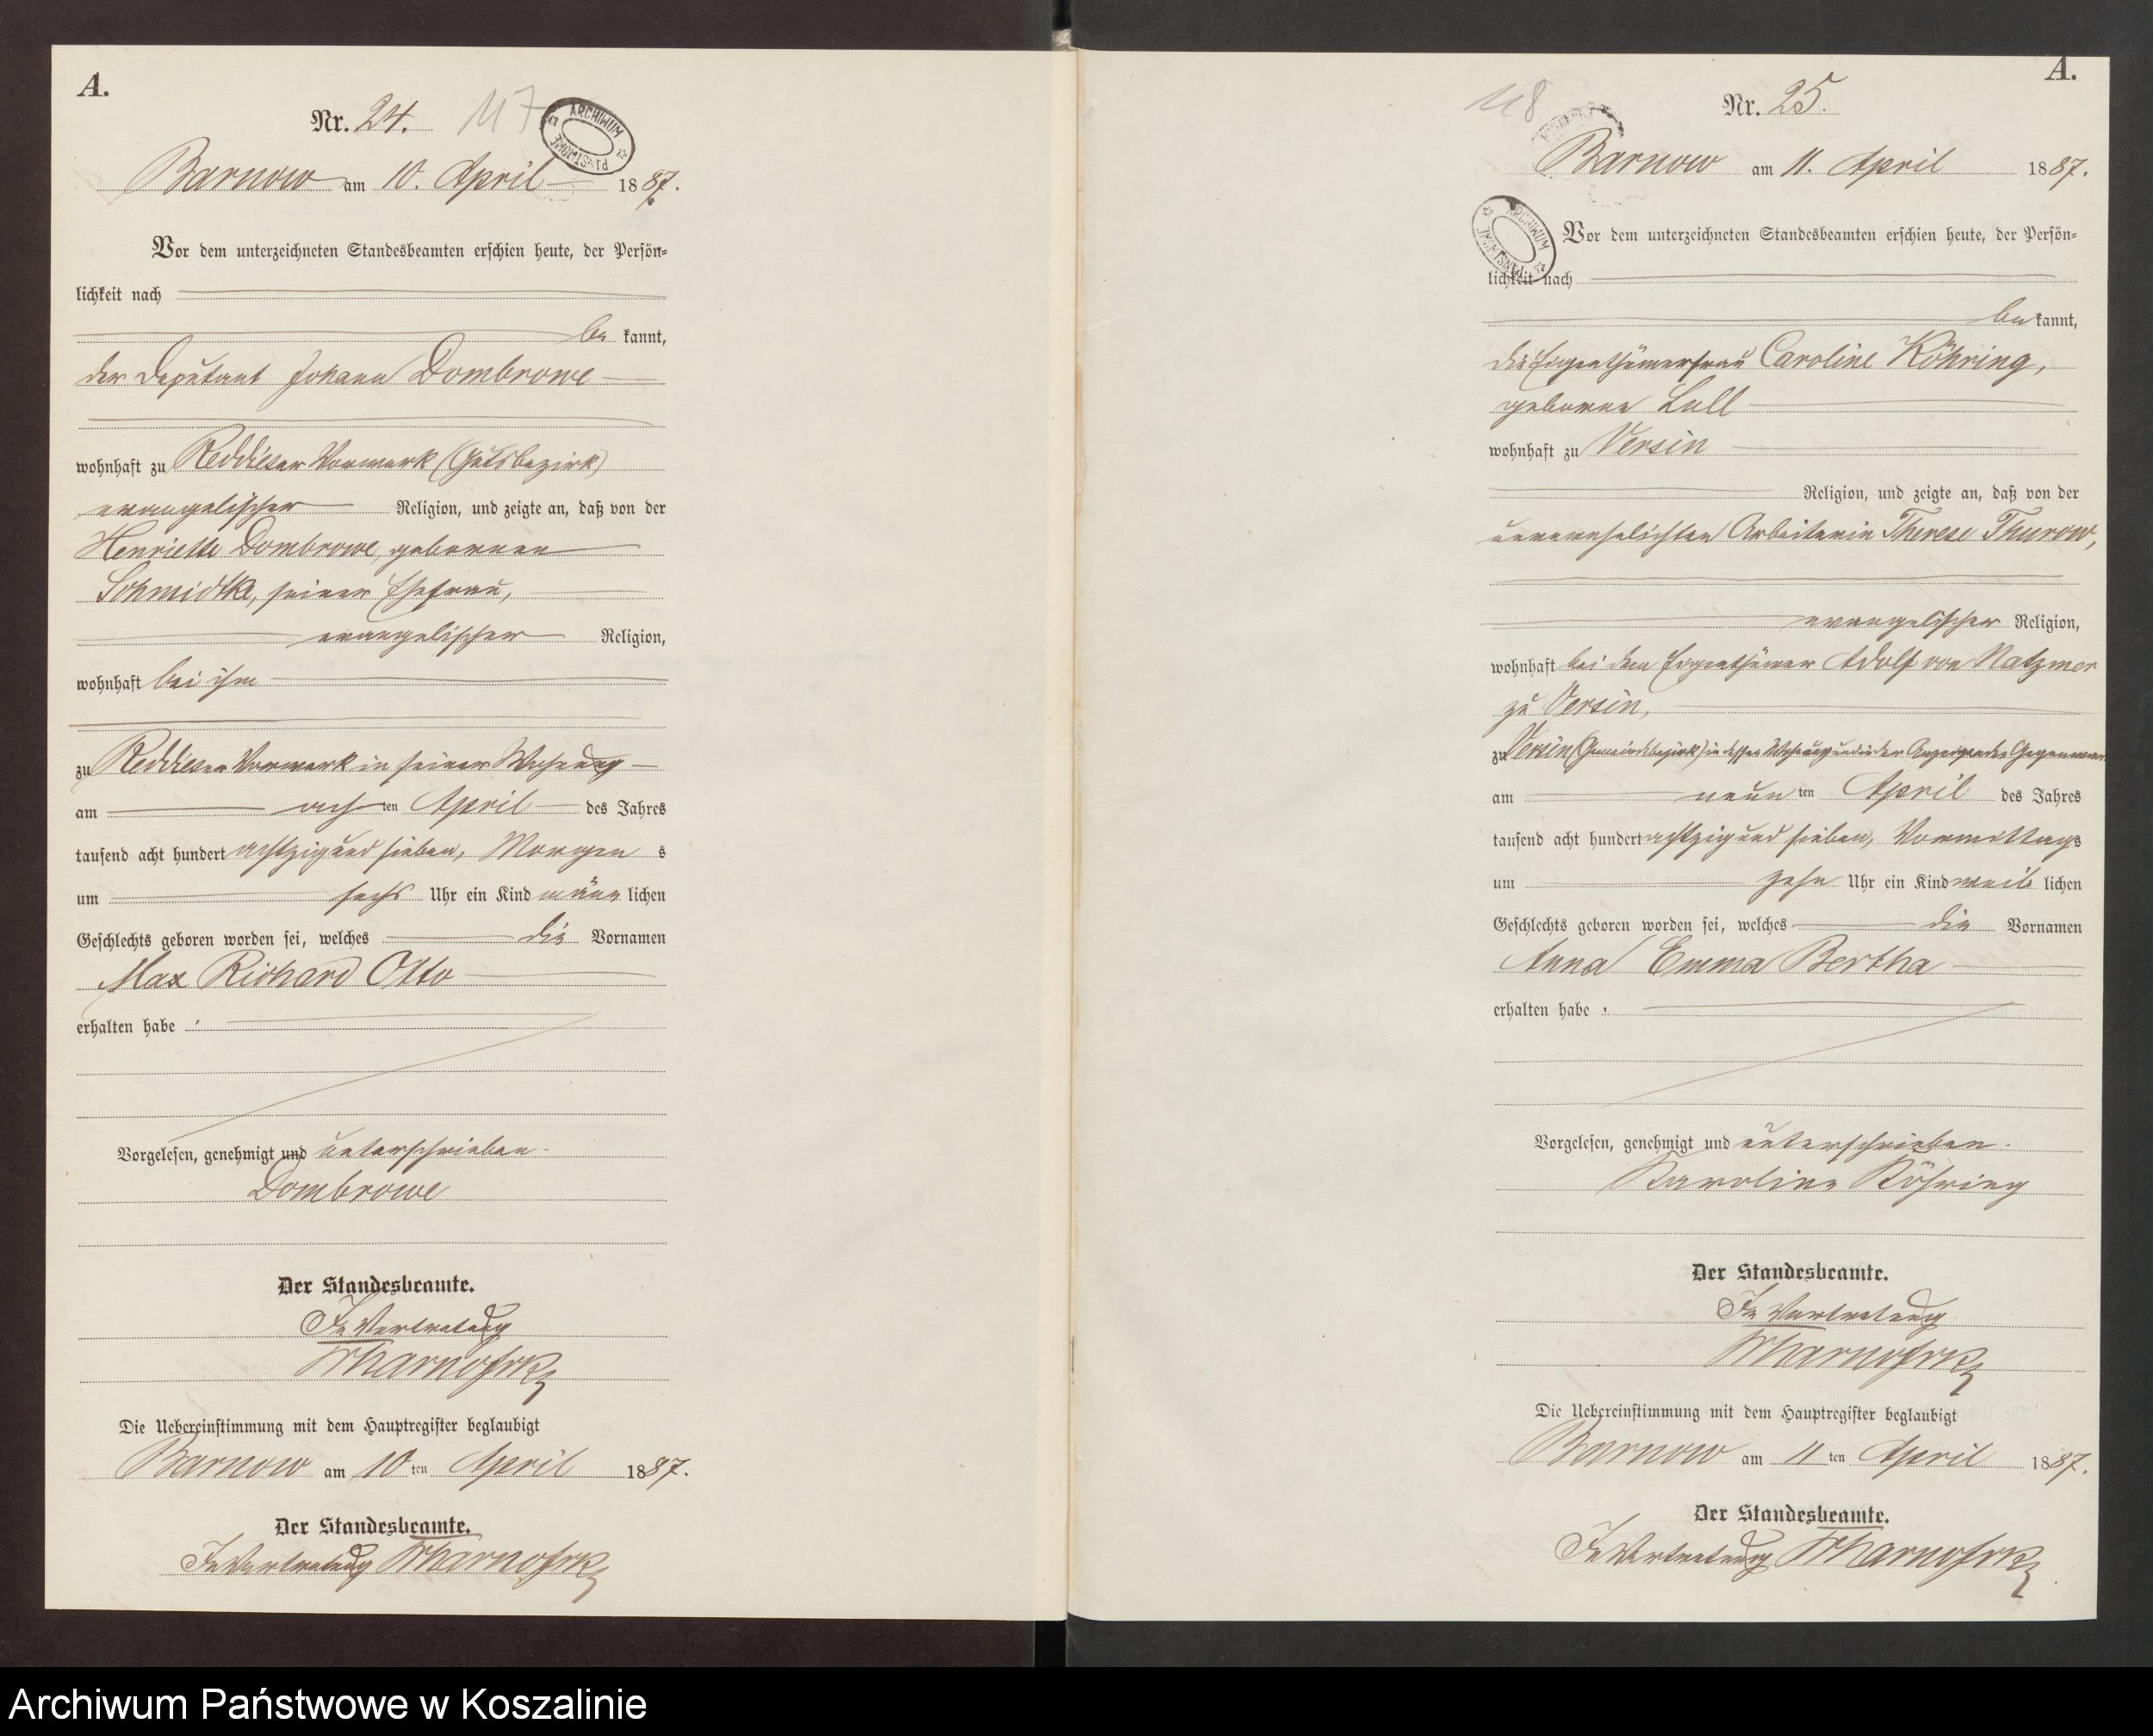 A.
Nr. 24.
117
ARCHIWUM PAŃSTWOWE
Barnow am 10. April 1887.
Vor dem unterzeichneten Standesbeamten erschien heute, der Persön=
lichkeit nach
be kannt,
der Deputant Johann Dombrowe
wohnhaft zu Reddieser Vorwerk (Gutsbezirk)
evangelischer Religion, und zeigte an, daß von der
Henriette Dombrowe, geborenen
Schmidtke, seiner Ehefrau,
evangelischer Religion,
wohnhaft bei ihm
zu Reddieser Vorwerk in seiner Wohnung
am ach ten April des Jahres
tausend acht hundert achtzig und sieben, Morgen s
um sechs Uhr ein Kind männ lichen
Geschlechts geboren worden sei, welches die Vornamen
Max Richard Otto
erhalten habe.
Vorgelesen, genehmigt und unterschrieben.
Dombrowe
Der Standesbeamte.
In Vertretung
Die Uebereinstimmung mit dem Hauptregister beglaubigt
Barnow am 10 ten April 1887.
Der Standesbeamte.
In Vertretung
A.
118
Nr. 25.
Barnow am 11. April 1887.
ARCHIWUM PAŃSTWOWE
Vor dem unterzeichneten Standesbeamten erschien heute, der Persön=
lichkeit nach
be kannt,
die Eigenthümerfrau Caroline Köhring,
geborene Lull
wohnhaft zu Versin
Religion, und zeigte an, daß von der
unverehelichten Arbeiterin Therese Thurow,
evangelischer Religion,
wohnhaft bei dem Eigenthümer Adolf von Natzmer
zu Versin,
zu Versin (Gemeindebezirk) in dessen Wohnung und in der Anzeigenden Gegenwart
am neun ten April des Jahres
tausend acht hundert achtzig und sieben, Vormittags
um zehn Uhr ein Kind weib lichen
Geschlechts geboren worden sei, welches die Vornamen
Anna Emma Bertha
erhalten habe.
Vorgelesen, genehmigt und unterschrieben.
Karoline Köhring
Der Standesbeamte.
In Vertretung
Die Uebereinstimmung mit dem Hauptregister beglaubigt
Barnow am 11 ten April 1887.
Der Standesbeamte.
In Vertretung
Archiwum Państwowe w Koszalinie